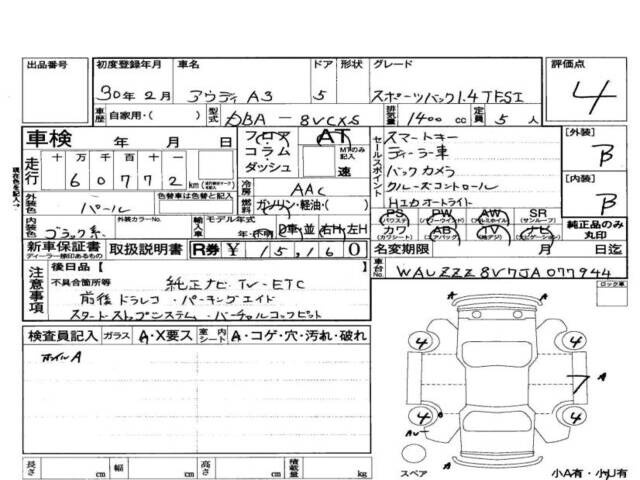 出品番号 初度登録年月 車名 ドア 形状 グレード 評価点
30年2月 アウディ A3 5 スポーツバック1.4TFSI 4
車歴 自家用・( ) 型式 DBA-8VCXS 排気量 1400 cc 定員 5 人
車検 年 月 日 フロア コラム・ダッシュ AT MTのみ記入 速
セールスポイント
スマートキー
ディーラー車
バックカメラ
クルーズコントロール
Hエカオートライト
[外装] B
[内装] B
純正品のみ丸印
走行 十 万 千 百 十 一
60772 km
冷房 AAC
外装色 パール 色替車は色替と記入 燃料 ガソリン・軽油・( )
内装色 ブラック系 外装カラーNo. 輸入車 モデル年式 年・不明 D車・並 右H・左H
PS (パワステ) PW (パワーウインド) AW (アルミホイル) SR (サンルーフ)
カワ (カワシート) AB (エアバッグ) TV (純正テレビ) ナビ (ナビゲーション)
新車保証書 ディーラー様印あるもの 取扱説明書 R券 ¥ 15,160
名変期限 月 日迄
車台No. WAUZZZ8V7JA077944
ロック車
注意事項
後日品【
不具合箇所等 純正ナビ・TV・ETC
前後ドラレコ・パーキングエイド
スタートストップシステム・バーチャルコックピット
検査員記入 ガラス A・X要ス 室内シート A・コゲ・穴・汚れ・破れ
ホイルA
4 4
A
A
7
4 4
A
A
スペア
小A有・小U有
長さ cm 幅 cm 高さ cm 積載量 kg